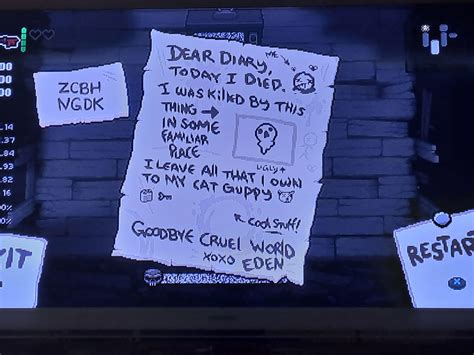 DEAR DIARY,
ME
TODAY I DIED.
I WAS KILLED BY THIS
THING →
IN SOME
FAMILIAR
PLACE
UGLY
I LEAVE ALL THAT I OWN
TO MY CAT GUPPY
COOL STUFF!
GOODBYE CRUEL WORLD
XOXO EDEN
ZCBH
NGDK
.14
.37
.84
.92
.82
16
RESTAR